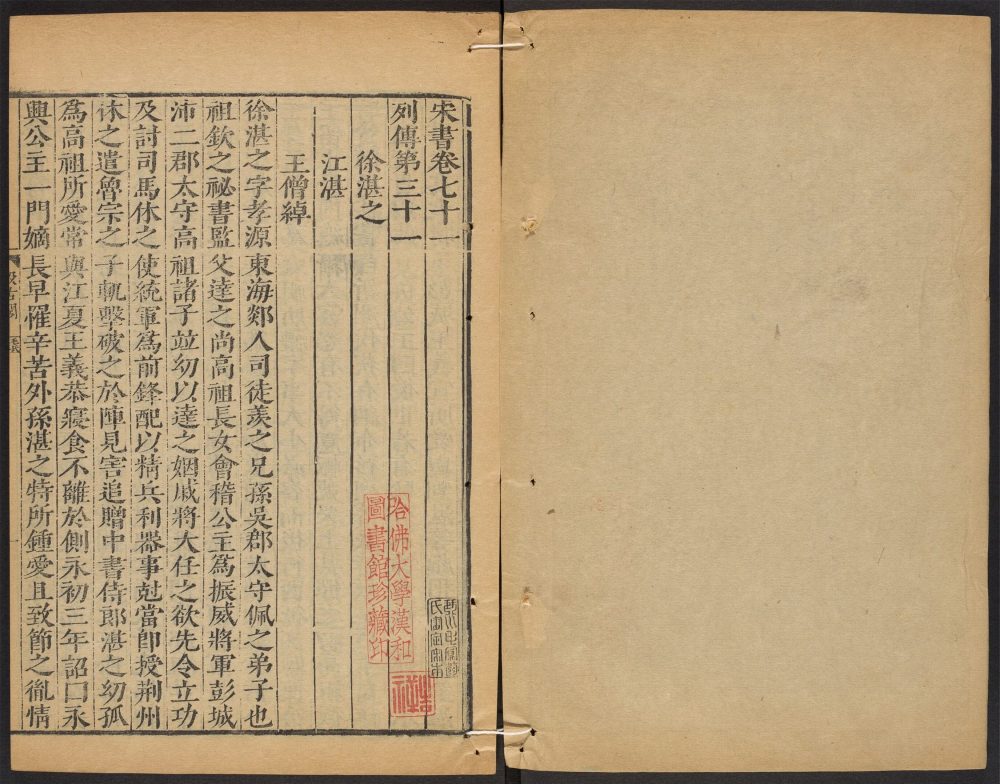 宋書卷七十一
列傳第三十一
徐湛之
江湛
王僧綽
徐湛之字孝源東海郯人司徒羨之兄孫吳郡太守佩之弟子也
祖欽之祕書監父達之尚高祖長女會稽公主爲振威將軍彭城
沛二郡太守高祖諸子竝幼以達之姻戚將大任之欲先令立功
及討司馬休之使統軍爲前鋒配以精兵利器事尅當卽授荆州
休之遣魯宗之子軌擊破之於陣見害追贈中書侍郎湛之幼孤
爲高祖所愛常與江夏王義恭寢食不離於側永初三年詔曰永
興公主一門嫡長早罹辛苦外孫湛之特所鍾愛且致節之胤情
汲古閣
哈佛大學漢和
圖書館珍藏印